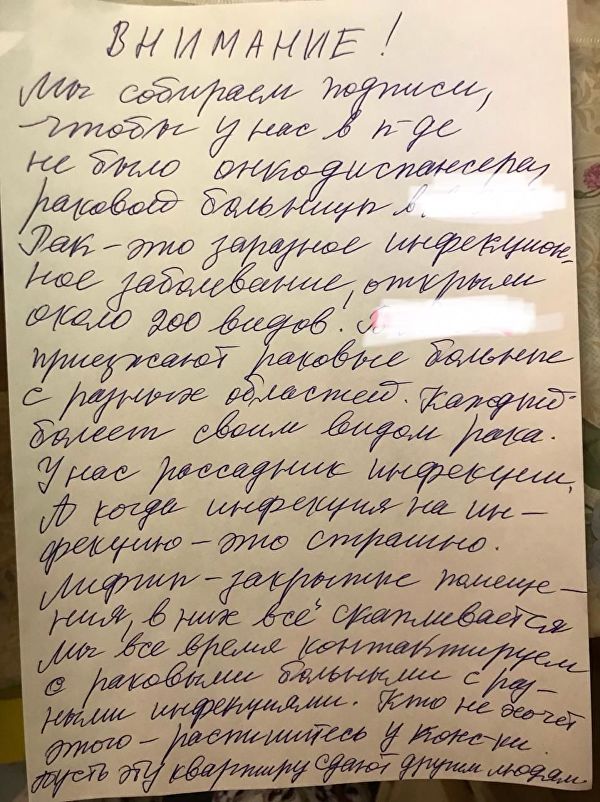 ВНИМАНИЕ!
Мы собираем подписи,
чтобы у нас в п-де
не было онкодиспансера,
раковой больницы в
Рак – это заразное инфекцион-
ное заболевание, открыли
около 200 видов!
приезжают раковые больные
с разных областей. Каждый
болеет своим видом рака.
У нас рассадник инфекции.
А когда инфекция на ин-
фекцию – это страшно.
Лифты – закрытые помеще-
ния, в них всё скапливается
Мы все время контактируем
с раковыми больными с раз-
ными инфекциями. Кто не хочет
этого – распишитесь у конс-ки.
Пусть эту квартиру сдают другим людям